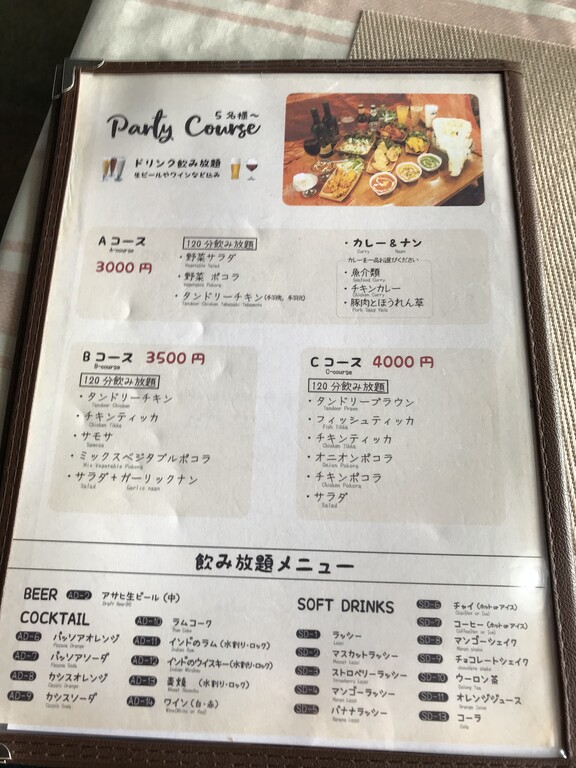 5名様～
Party Course
ドリンク飲み放題
生ビールやワインなど込み
Aコース
A-course
3000円
120分飲み放題
・野菜サラダ
Vegetable Salad
・野菜 ポコラ
Vegetable Pakora
・タンドリーチキン(手羽先、手羽元)
Tandoor Chicken Tebasaki Tebamoto
・カレー&ナン
Curry Naan
カレーを一品お選びください
・魚介類
Seafood Curry
・チキンカレー
Chicken Curry
・豚肉とほうれん草
Pork Saag
Bコース 3500円
B-course
120分飲み放題
・タンドリーチキン
Tandoor Chicken
・チキンティッカ
Chicken Tikka
・サモサ
Samosa
・ミックスベジタブルポコラ
Mix Vegetable Pakora
・サラダ+ガーリックナン
Salad Garlic naan
Cコース 4000円
C-course
120分飲み放題
・タンドリープラウン
Tandoor Prawn
・フィッシュティッカ
Fish Tikka
・チキンティッカ
Chicken Tikka
・オニオンポコラ
Onion Pakora
・チキンポコラ
Chicken Pakora
・サラダ
Salad
飲み放題メニュー
BEER AD-2 アサヒ生ビール(中)
COCKTAIL
AD-6 パッソアオレンジ
Passoa Orange
AD-7 パッソアソーダ
Passoa Soda
AD-8 カシスオレンジ
Cassis Orange
AD-9 カシスソーダ
Cassis Soda
AD-10 ラムコーク
Rum Coke
AD-11 インドのラム(水割り・ロック)
Indian Rum
AD-12 インドのウイスキー(水割り・ロック)
Indian Whiskey
AD-13 麦焼 (水割り・ロック)
AD-14 ワイン(白・赤)
SOFT DRINKS
SD-1 ラッシー
Lassi
SD-2 マスカットラッシー
Muscat Lassi
SD-3 ストロベリーラッシー
Strawberry Lassi
SD-4 マンゴーラッシー
Mango Lassi
SD-5 バナナラッシー
Banana Lassi
SD-6 チャイ(ホットorアイス)
SD-7 コーヒー(ホットorアイス)
SD-8 マンゴーシェイク
Mango shake
SD-9 チョコレートシェイク
chocolate shake
SD-10 ウーロン茶
Oolong Tea
SD-11 オレンジジュース
Orange Juice
SD-13 コーラ
Cola